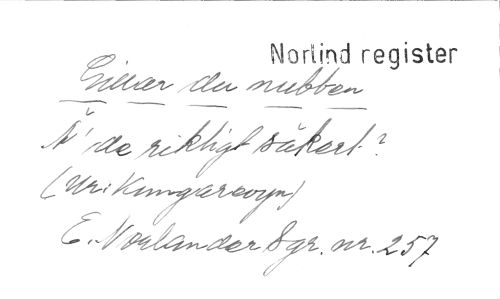 Norlind register
Giver du nubben
Ä' de riktigt säkert?
(Ur: Kungarevyn)
E. Norlander Sgr. nr. 257